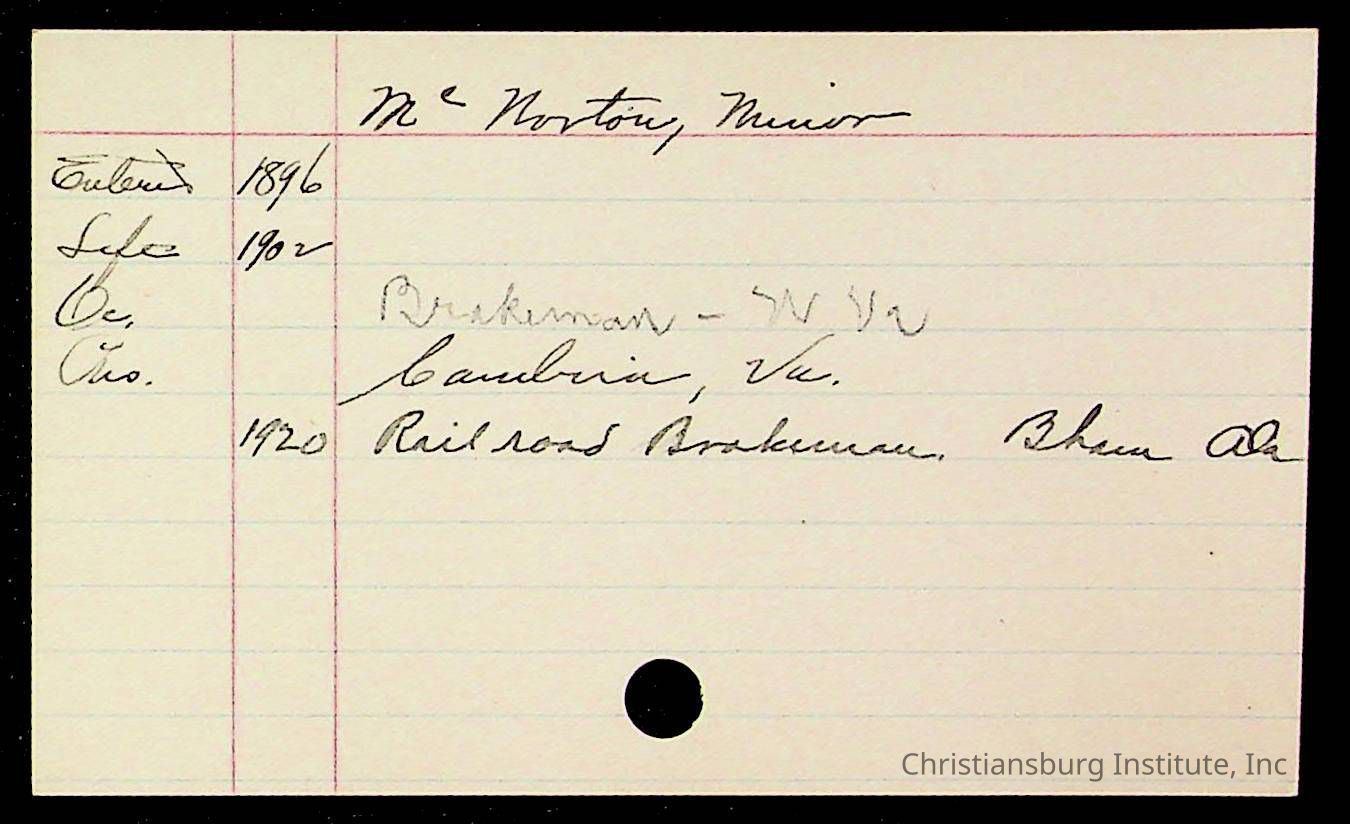 Mc Norton, Minor
Entered 1896
Left 1902
Oc. Brakeman - W Va
Cambria, Va.
1920 Railroad Brakeman. Bham Ala
Christiansburg Institute, Inc